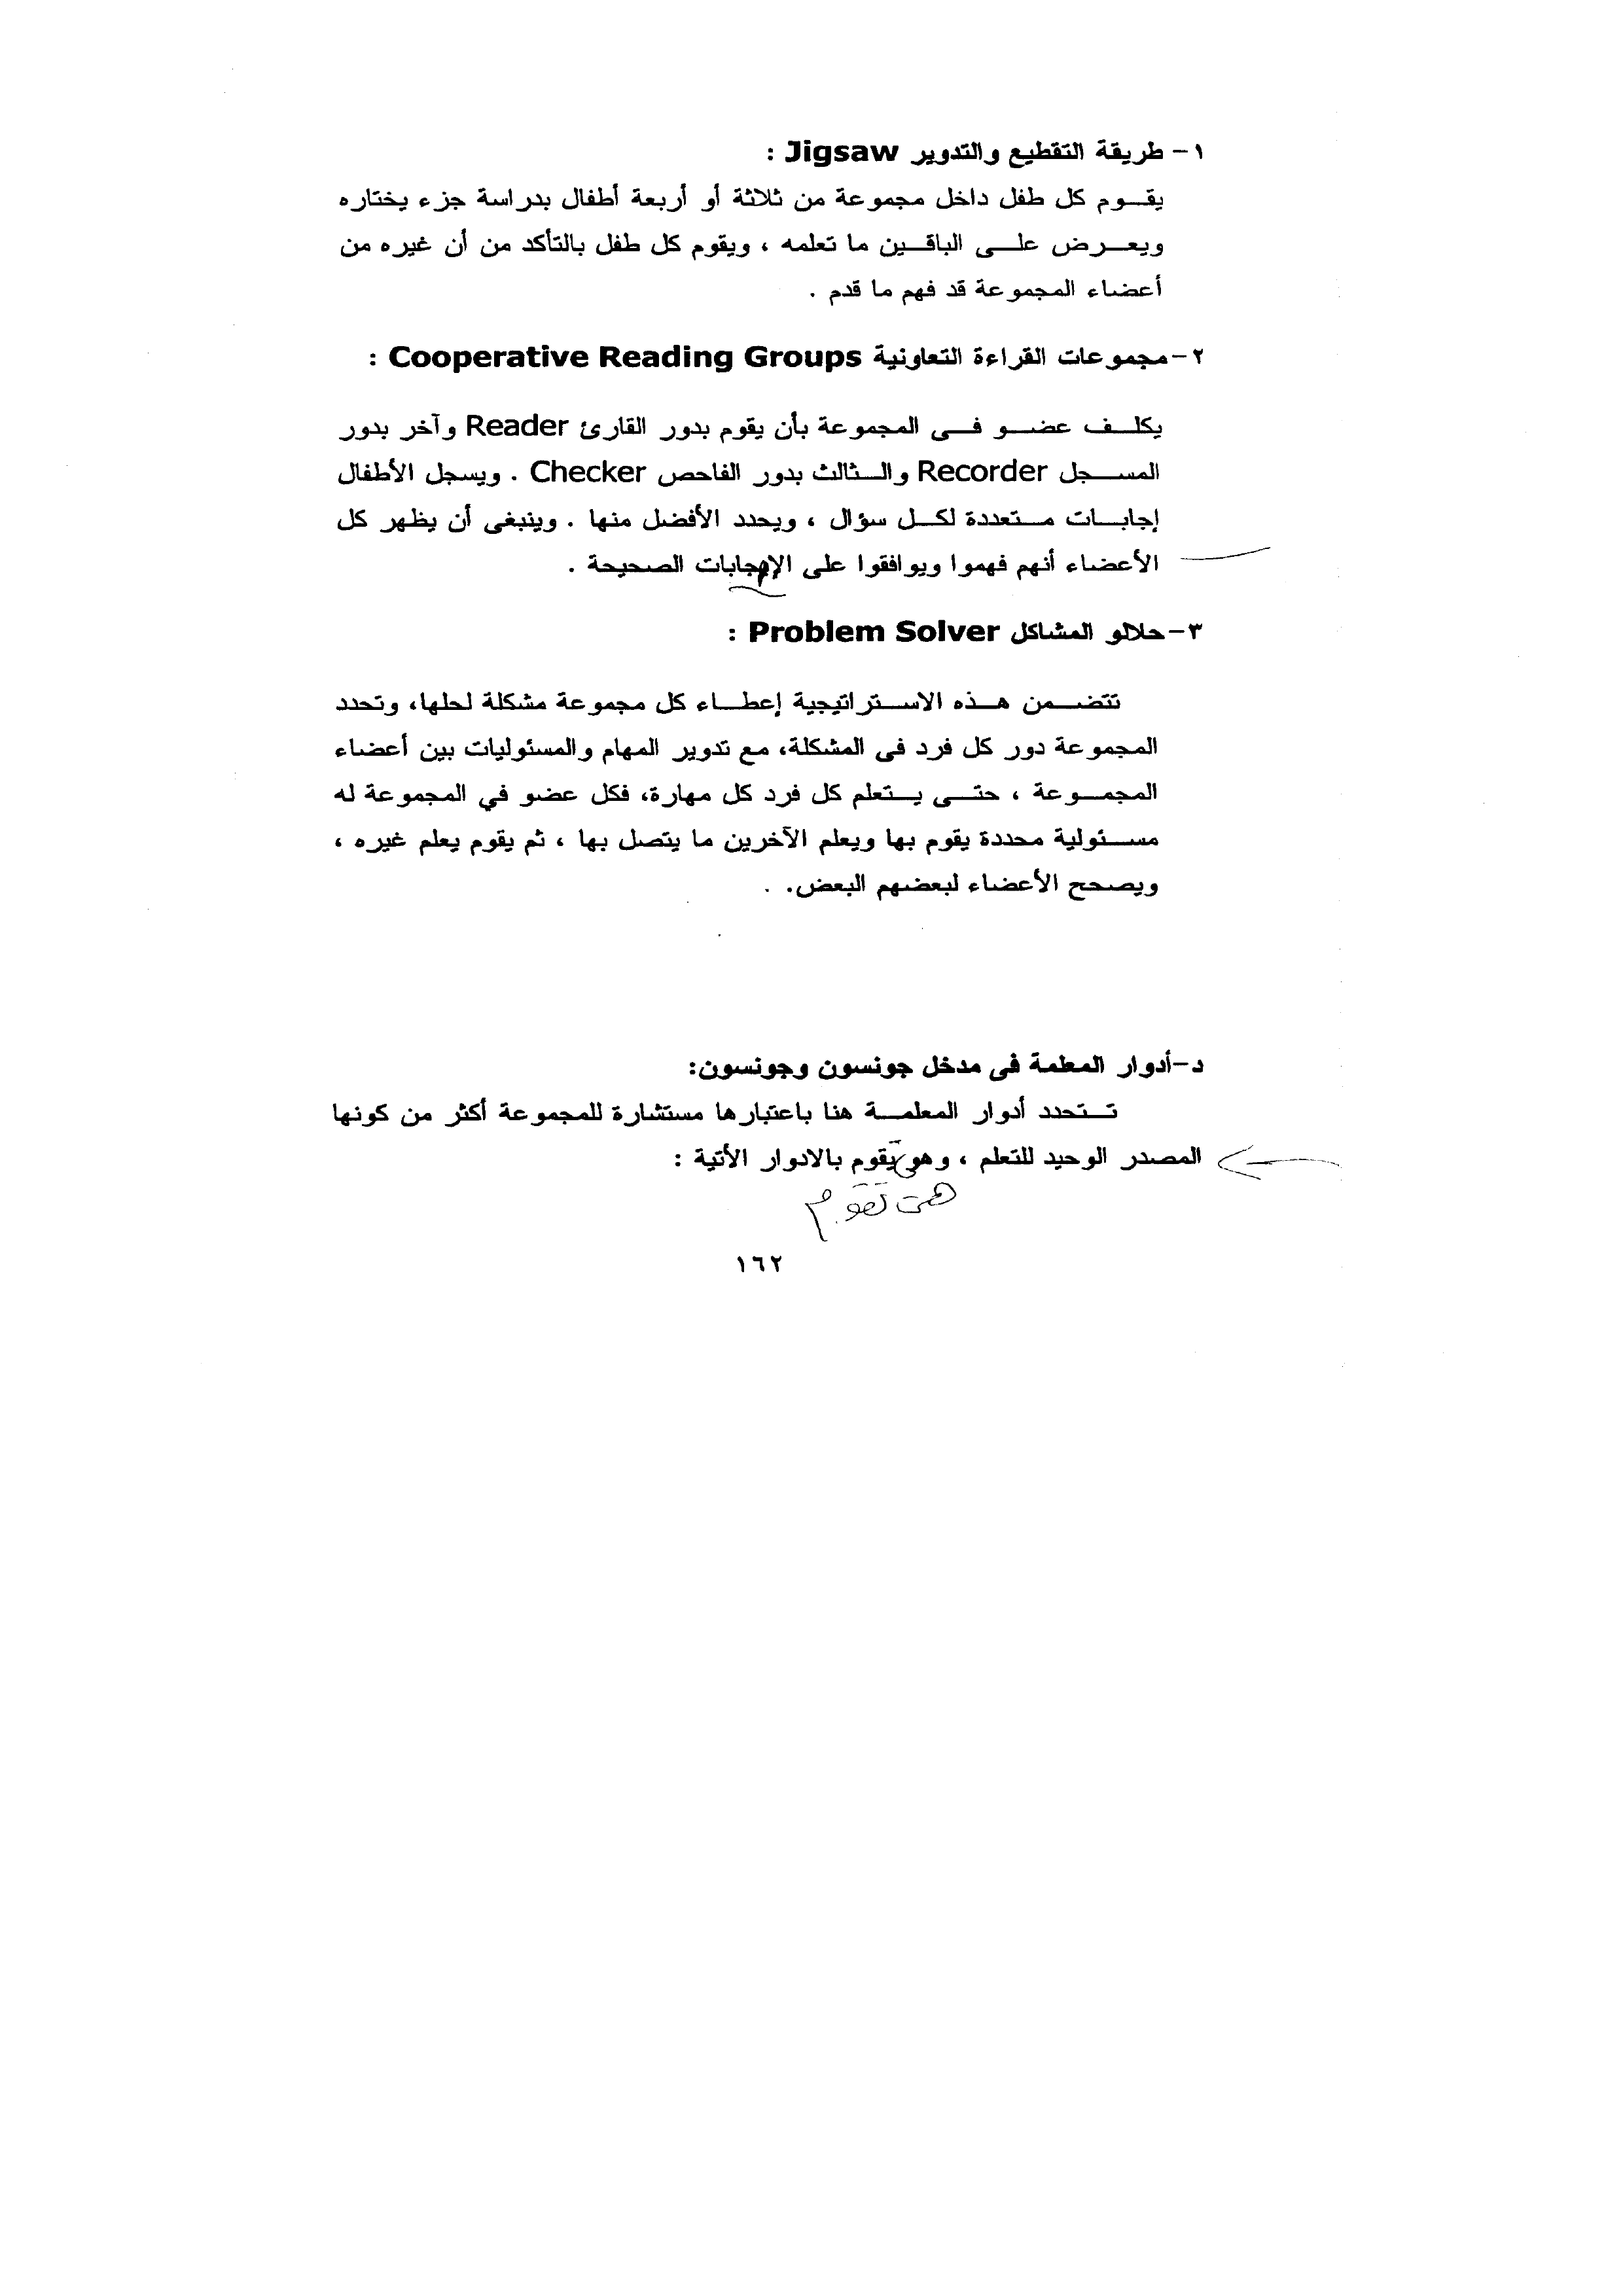 ١- طريقة التقطيع والتدوير Jigsaw :
يقوم كل طفل داخل مجموعة من ثلاثة أو أربعة أطفال بدراسة جزء يختاره
ويعرض على الباقين ما تعلمه ، ويقوم كل طفل بالتأكد من أن غيره من
أعضاء المجموعة قد فهم ما قدم .
٢-مجموعات القراءة التعاونية Cooperative Reading Groups :
يكلف عضو فى المجموعة بأن يقوم بدور القارئ Reader وآخر بدور
المسجل Recorder والثالث بدور الفاحص Checker . ويسجل الأطفال
إجابات متعددة لكل سؤال ، ويحدد الأفضل منها . وينبغى أن يظهر كل
الأعضاء أنهم فهموا ويوافقوا على الإجابات الصحيحة .
٣-حلالو المشاكل Problem Solver :
تتضمن هذه الاستراتيجية إعطاء كل مجموعة مشكلة لحلها، وتحدد
المجموعة دور كل فرد فى المشكلة، مع تدوير المهام والمسئوليات بين أعضاء
المجموعة ، حتى يتعلم كل فرد كل مهارة، فكل عضو في المجموعة له
مسئولية محددة يقوم بها ويعلم الآخرين ما يتصل بها ، ثم يقوم يعلم غيره ،
ويصحح الأعضاء لبعضهم البعض. .
د-أدوار المعلمة فى مدخل جونسون وجونسون:
تتحدد أدوار المعلمة هنا باعتبارها مستشارة للمجموعة أكثر من كونها
المصدر الوحيد للتعلم ، وهو يقوم بالادوار الأتية :
هى تقوم
١٦٢